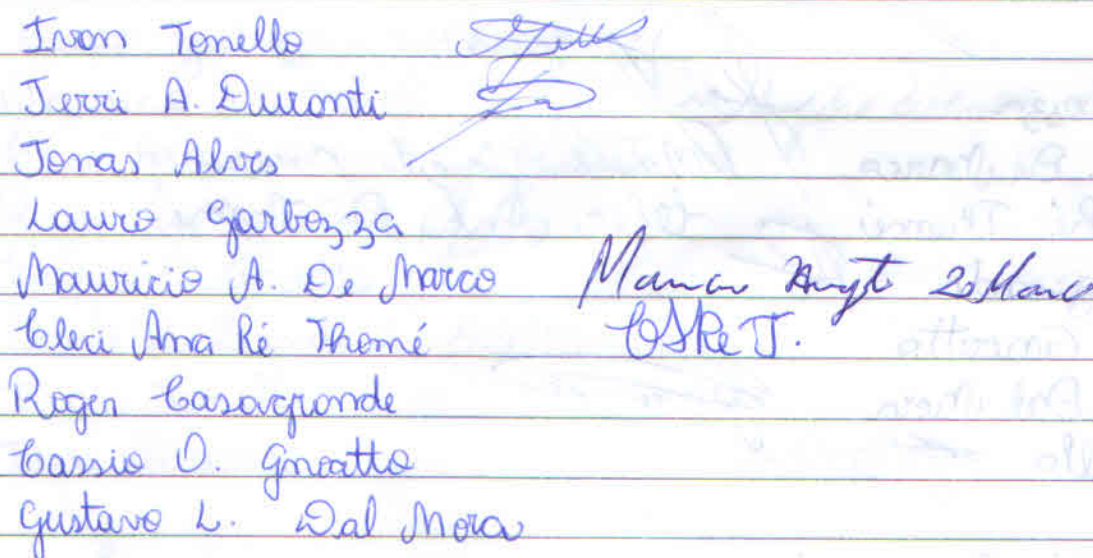 Ivan Tonello
Jerri A. Duranti
Jonas Alves
Lauro Garbozza
Mauricio A. De Marco
Cleci Ana Ré Thomé CARe T.
Roger Casagrande
Cassio O. Gnoatto
Gustavo L. Dal Mora